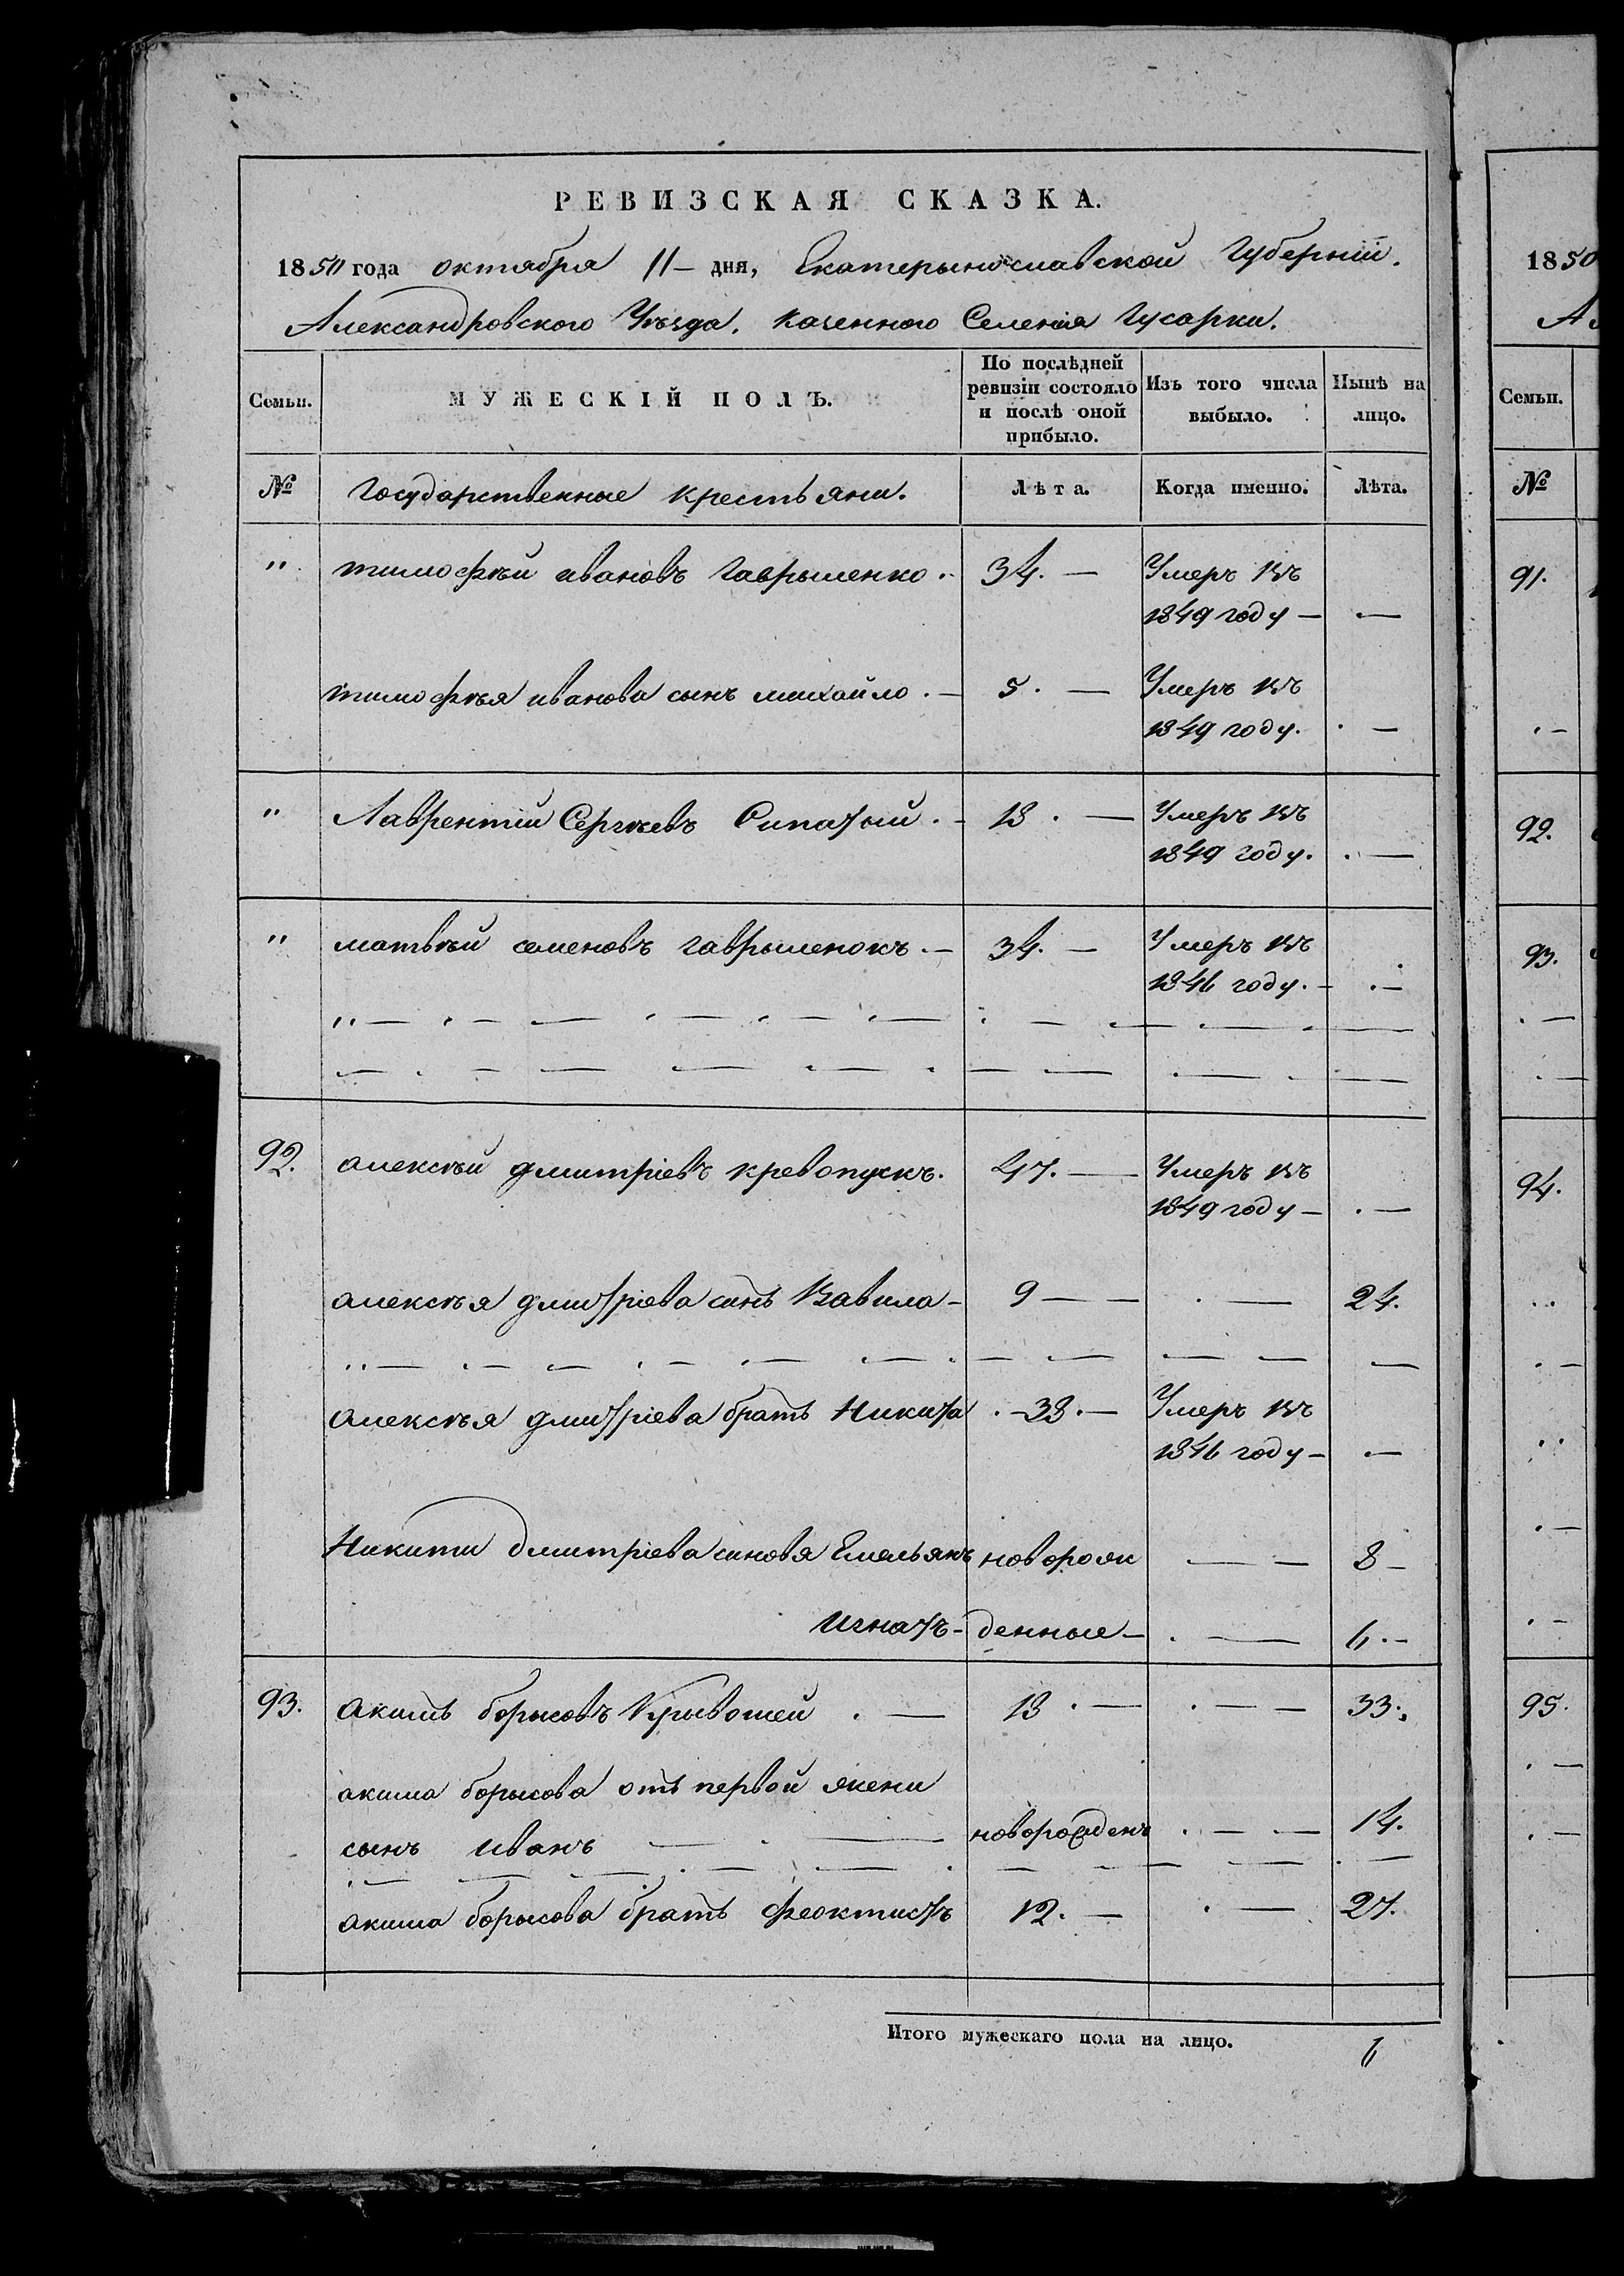 РЕВИЗСКАЯ СКАЗКА.
1850 года октября 11 дня, Екатерынославской Губерніи.
Александровского Уѣзда. казенного Селенія Гусарки.
Семьи. МУЖЕСКІЙ ПОЛЪ. По послѣдней ревизіи состояло и послѣ оной прибыло. Изъ того числа выбыло. Нынѣ на лицо.
№ Государственные крестьяни. Лѣта. Когда именно. Лѣта.
" тимофѣй ивановъ Гаврыленко 34. — Умеръ въ
1849 году — —
тимофѣя иванова сынъ михайло. — 5. — Умеръ въ
1849 году. —
" Лаврентій Сергѣевъ Сипатый. — 18. — Умеръ въ
1849 году. —
" матвѣй семеновъ гаврыленокъ. — 34. — Умеръ въ
1846 году. —
92. алексѣй дмитріевъ кревопускъ. 47. — Умеръ въ
1849 году — —
алексѣя дмитріева синъ Вавила — 9 — — 24.
алексѣя дмитріева братъ Никита 38. — Умеръ въ
1846 году — —
Никити дмитріева синовя Емельянъ новорож — 8 —
Игнатъ — денные — — 6. —
93. акимъ борысовъ Крывошей. — 18. — — 33.
акима борысова отъ первой жени
сынъ иванъ — новорожденъ — 14.
акима борысова братъ феоктистъ 12. — — 27.
Итого мужескаго пола на лицо. 6
1850
Семьи.
№
91.
92.
93.
94.
95.